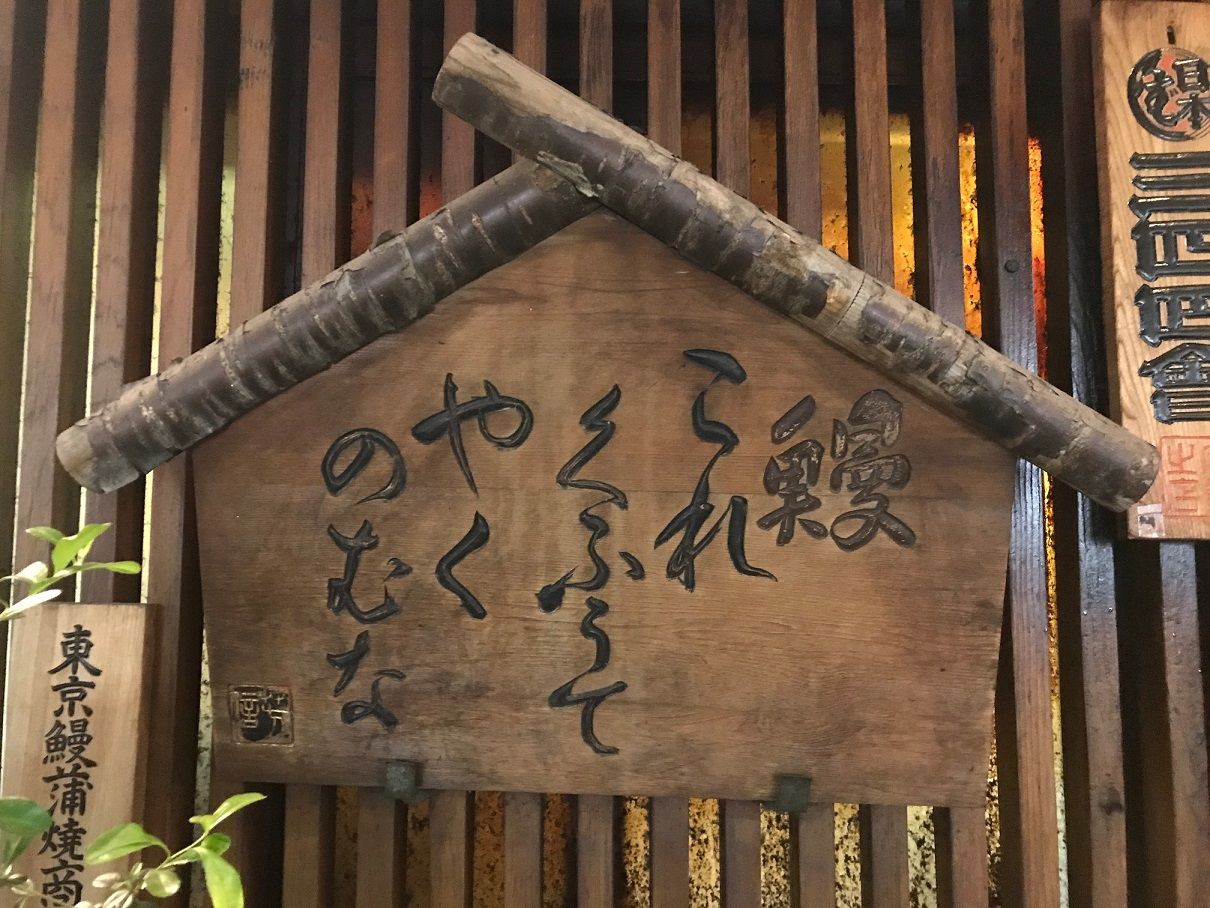 日本
鰻
これ
くふうて
やく
のむな
東京鰻蒲燒商